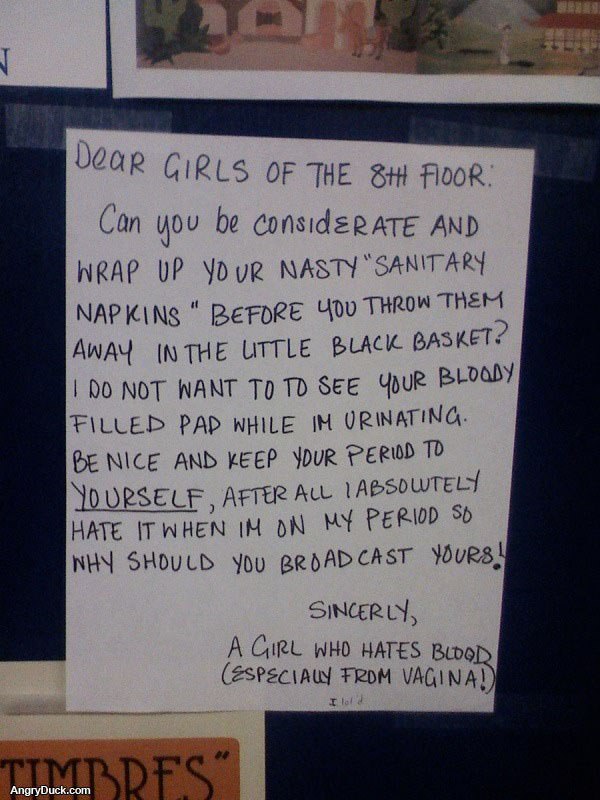 N
DeaR GIRLS OF THE 8TH FlOOR:
Can you be considERATE AND
WRAP UP YOUR NASTY "SANITARY
NAPKINS" BEFORE YOU THROW THEM
AWAY IN THE LITTLE BLACK BASKET?
I DO NOT WANT TO TO SEE YOUR BLOODY
FILLED PAD WHILE IM URINATING.
BE NICE AND KEEP YOUR PERIOD TO
YOURSELF, AFTER ALL I ABSOLUTELY
HATE IT WHEN IM ON MY PERIOD SO
WHY SHOULD YOU BROADCAST YOURS!
SINCERLY,
A GIRL WHO HATES BLOOD
(ESPECIALLY FROM VAGINA!)
I lol'd
TIMBRES"
AngryDuck.com